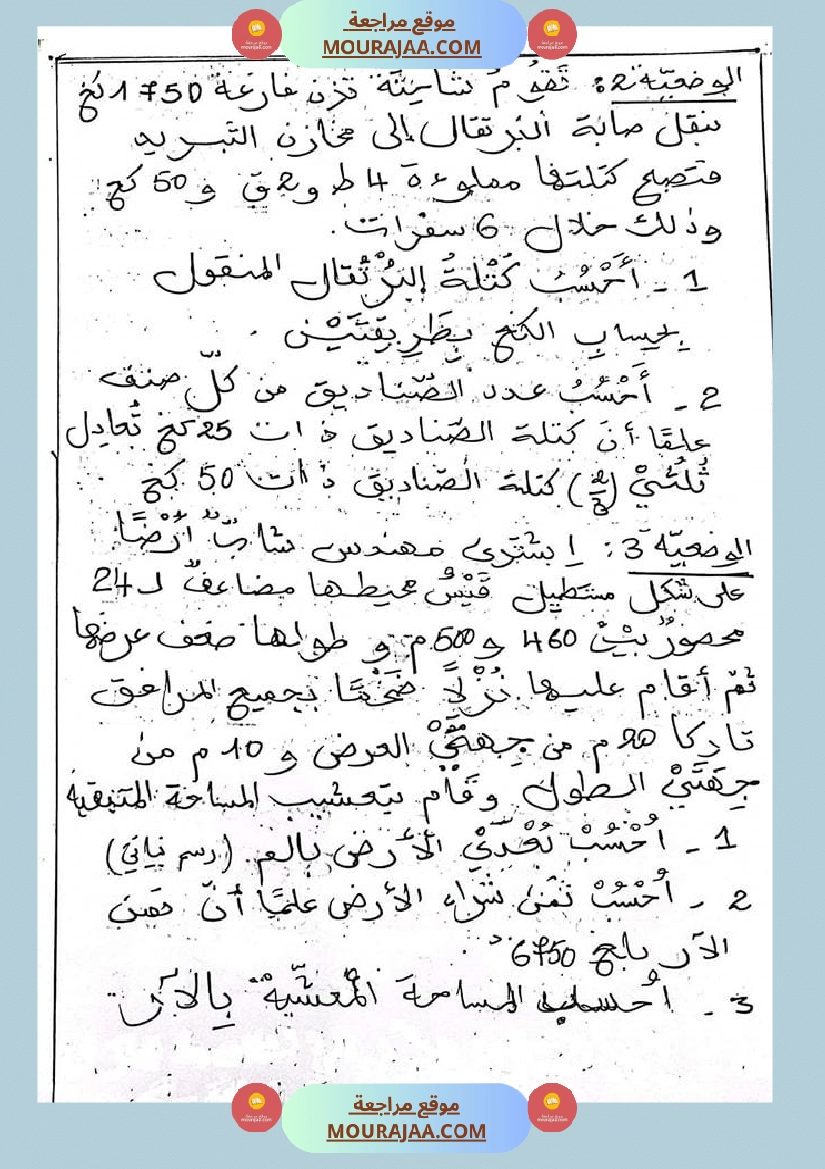 موقع مراجعة
MOURAJAA.COM
الوضعيّة 2: تَقُومُ شاحِنَة تزن فارغة 1750 كغ
بنقل صابة البرتقال إلى مخازن التّبريد
فتصبح كتلتها مملوءة 4 ط و 2 ق و 50 كغ
وذلك خلال 6 سفرات.
1 - أَحْسُبُ كُتْلةَ البُرْتُقال المنقول
بحساب الكغ بِطَرِيقَتَيْن.
2 - أَحْسُبُ عدد الصّناديق من كلّ صنف
علمًا أنّ كتلة الصّناديق ذات 25 كغ تُعادِل
ثُلُثَيْ (2/3) كتلة الصّناديق ذات 50 كغ
الوضعيّة 3: إشترى مهندس شابّ أرْضًا
على شكل مستطيل قَيْسُ محيطها مضاعفٌ لـ 24
محصورٌ بين 460 و 500 م و طولها ضعف عرضها
ثمّ أقام عليها نُزْلًا ضَخْمًا بجميع المرافق
تاركا 20 م من جِهَتَيْ العرض و 10 م من
جِهَتَيْ الطول وقَام بتعشيب المساحة المتبقية
1 - أَحْسُبُ بُعْدَيْ الأرض بالم. (رسم بياني)
2 - أَحْسُبُ ثمن شراء الأرض علمًا أنّ ثمن
الآر بلغ 6750 د.
3 - أحسب المساحة المُعشّبة بِالآر
موقع مراجعة
MOURAJAA.COM